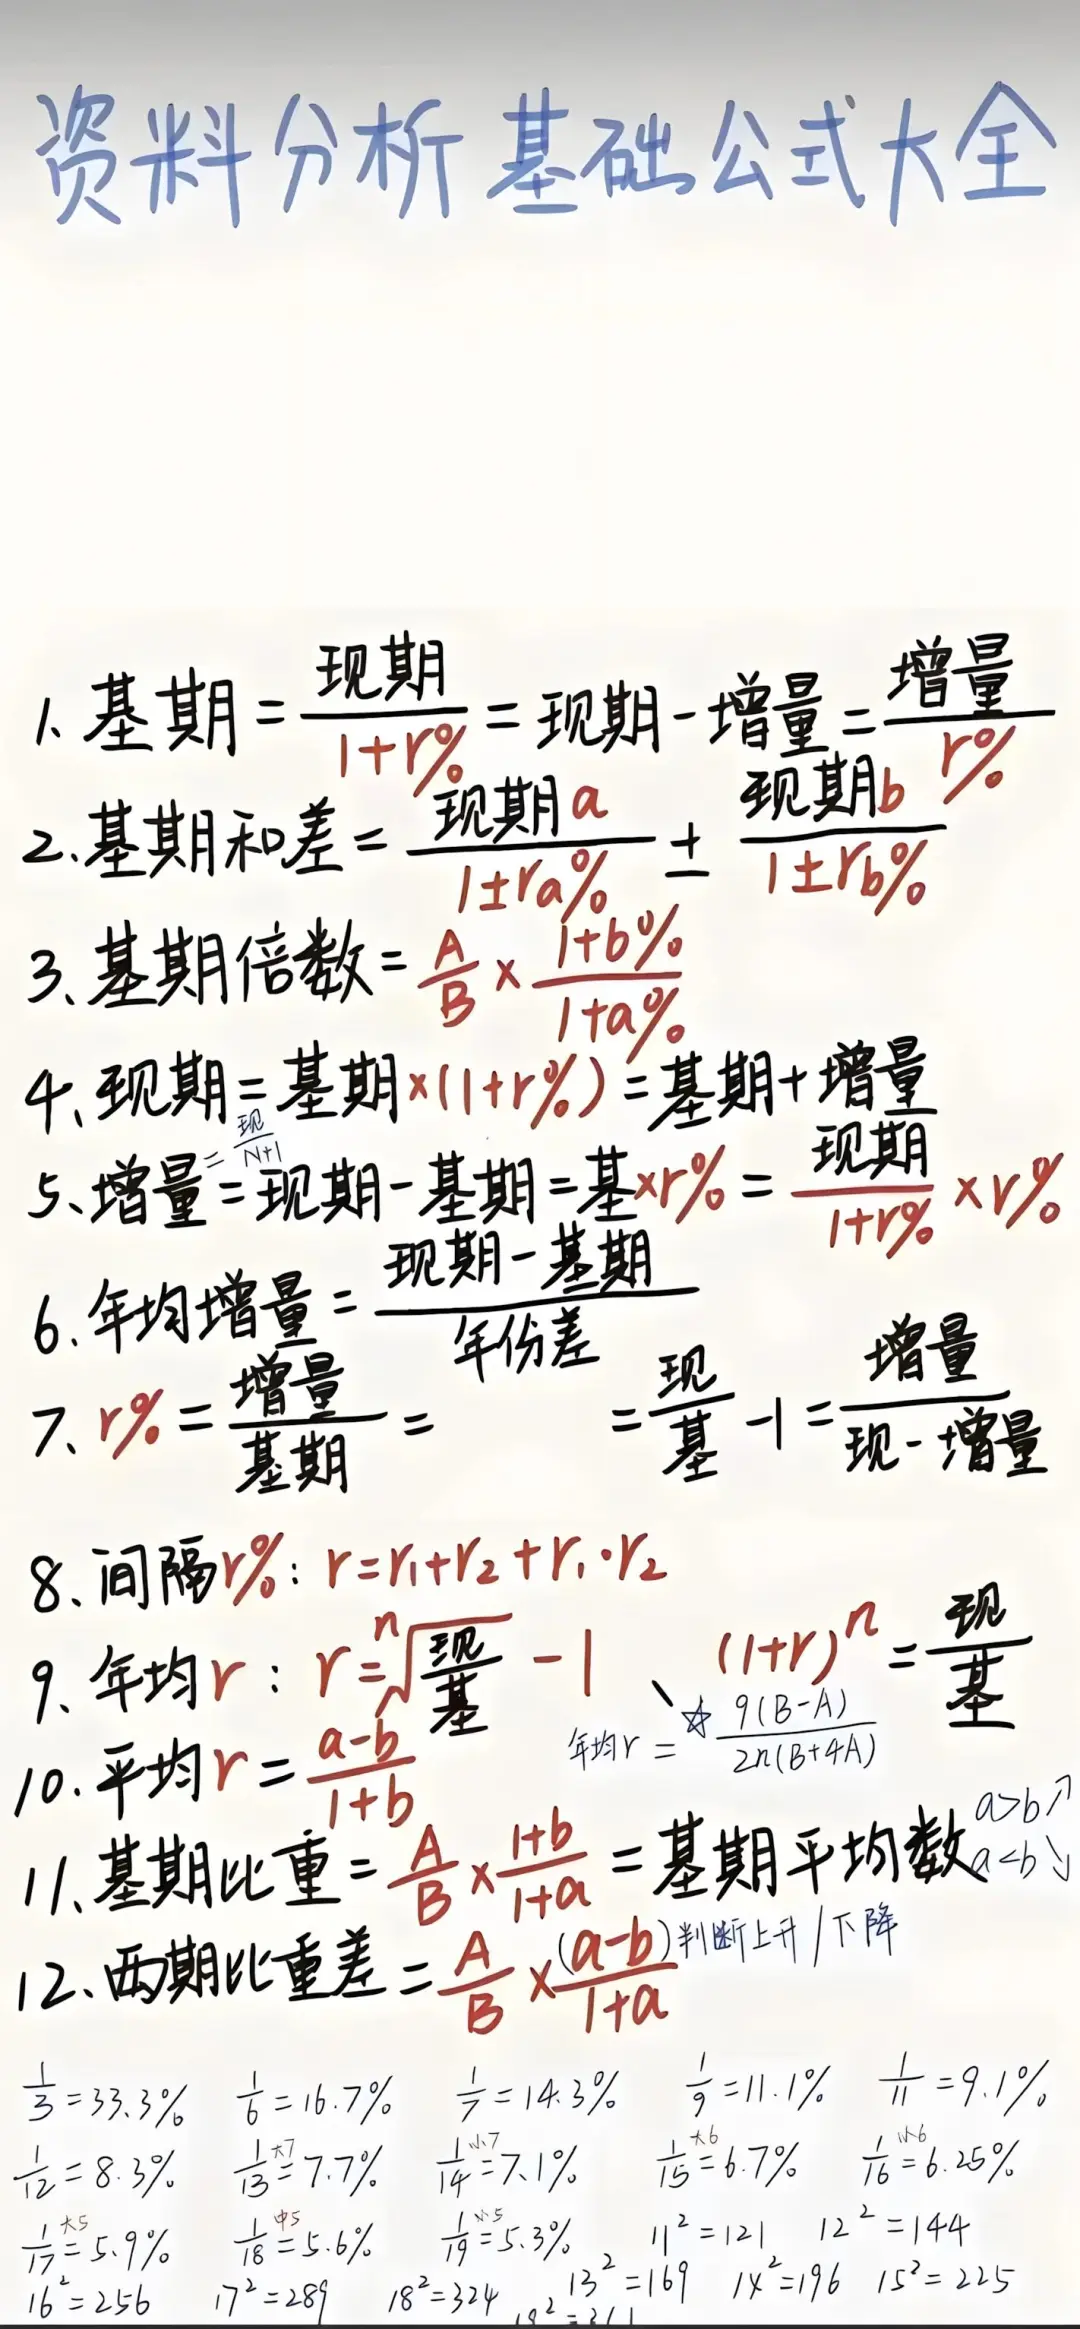 资料分析基础公式大全
1、基期=现期/1+r%=现期-增量=增量/r%
2、基期和差=现期a/1±ra%±现期b/1±rb%
3、基期倍数=A/B×1+b%/1+a%
4、现期=基期×(1+r%)=基期+增量
=现/N+1
5、增量=现期-基期=基×r%=现期/1+r%×r%
6、年均增量=现期-基期/年份差
7、r%=增量/基期= =现/基-1=增量/现-增量
8、间隔r%:r=r₁+r₂+r₁·r₂
9、年均r:r=ⁿ√现/基-1 (1+r)ⁿ=现/基
年均r=☆9(B-A)/2n(B+4A)
10、平均r=a-b/1+b
11、基期比重=A/B×1+b/1+a=基期平均数
a>b↗
a<b↘
12、两期比重差=A/B×(a-b)/1+a 判断上升/下降
1/3=33.3% 1/6=16.7% 1/7=14.3% 1/9=11.1% 1/11=9.1%
大7 小7 大6 小6
1/12=8.3% 1/13=7.7% 1/14=7.1% 1/15=6.7% 1/16=6.25%
大5 中5 小5
1/17=5.9% 1/18=5.6% 1/19=5.3% 11²=121 12²=144
16²=256 17²=289 18²=324 13²=169 14²=196 15²=225
19²=361